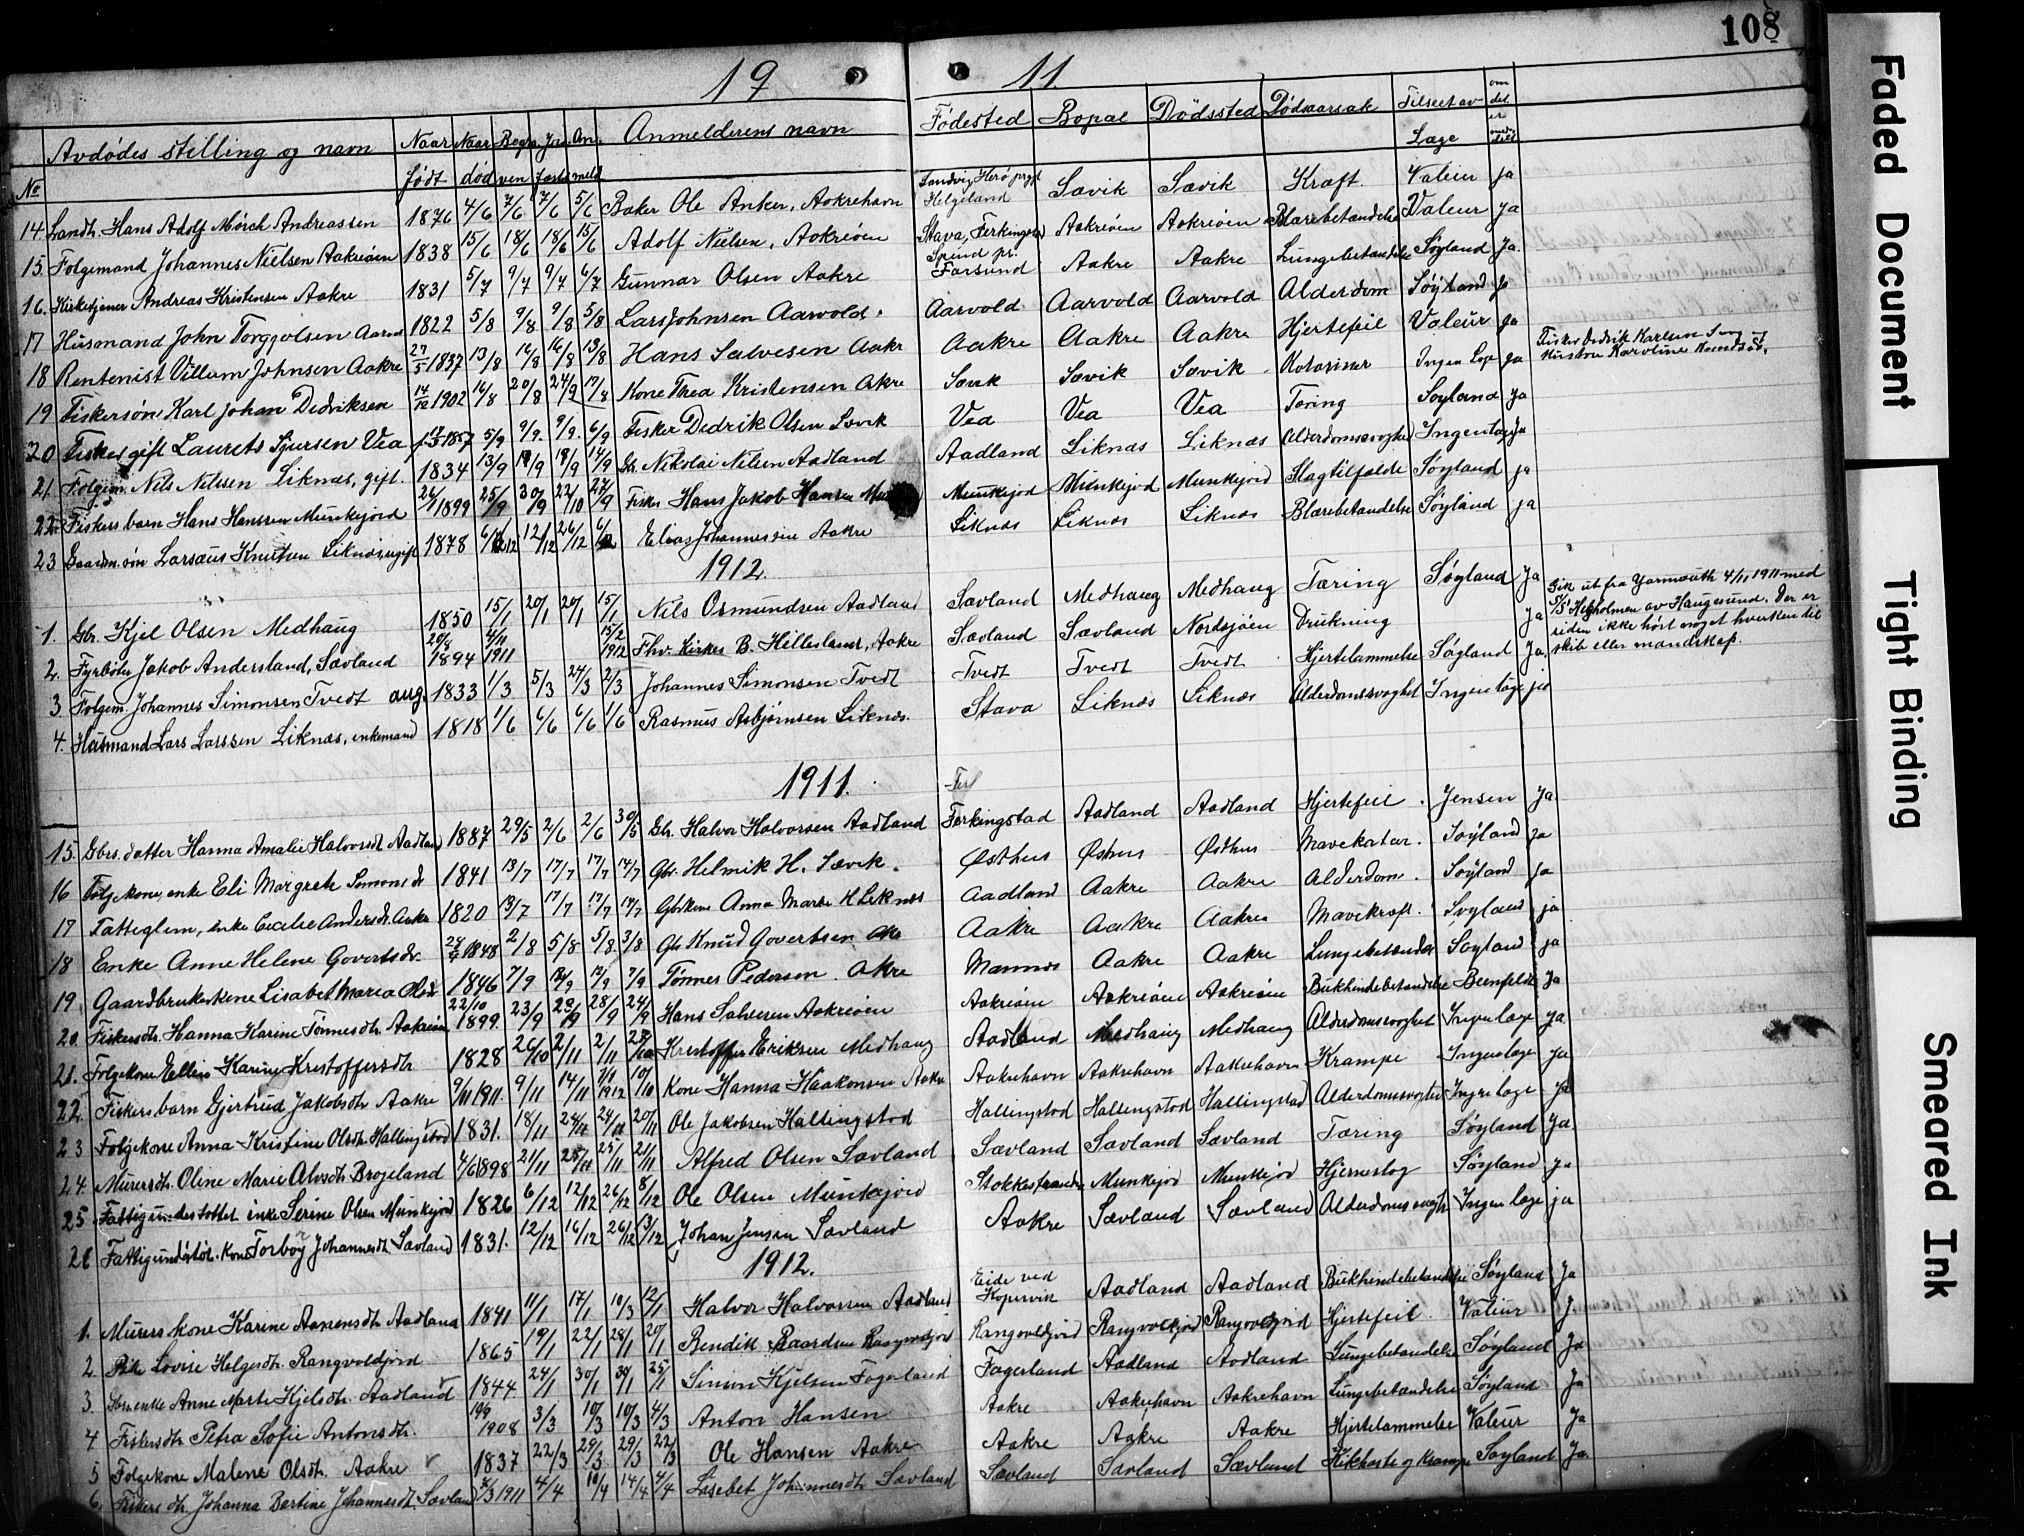 108
19 11.
No Avdødes stilling og navn Naar født Naar død Begra ven Jord fæstet An meld Anmelderens navn Fødested Bopæl Dödssted Dödsaarsak Tilseet av Læge om det er
14. Landh. Hans Adolf Mörch Andreassen 1876 4/6 7/6 7/6 5/6 Baker Ole Anker, Aakrehavn Sandvig, Herö prgd Helgeland Sævik Sævik Kræft. Valeur ja
15. Folgemand Johannes Nielsen Aakreiøen 1838 15/6 18/6 18/6 15/6 Adolf Nielsen, Aakreiøen Stava, Ferkingstad Aakreiøen Aakreiøen Blærebetændelse Valeur ja
16. Kirketjener Andreas Kristensen Aakre 1831 5/7 9/7 9/7 6/7 Gunnar Olsen Aakre Spind pr. Farsund Aakre Aakre Lungebetændelse Søyland Ja.
17 Husmand John Torggolsen Aarvol 1822 5/8 9/8 9/8 5/8 Lars Johnsen Aarvold. Aarvold Aarvold Aarvold Alderdom Søyland Ja
18 Rentenist Villum Johnsen Aakre 27/5 1837 13/8 16/8 16/8 13/8 Hans Salvesen Aakr Aakre Aakre Aakre Hjertefeil Valeur Ja
19 Fiskersøn Karl Johan Dedriksen 14/12 1902 16/8 20/8 24/9 17/8 Kone Thea Kristensen Akre Sævik Sævik Sævik Ingen Læge ja Fisker Dedrik Karlsen Sævig og Hustru Karoline Knudsdt.
20 Fisker gift Laurets Sjursen Vea 1857 5/9 9/9. 9/9. 6/9 Fisker Dedrik Olsen Sævik Vea Vea Vea Tæring Søyland Ja
21. Følgem. Nils Nilssen Liknæs, gift. 1834 13/9 18/9 18/9 14/9 Gb. Nikolai Nilsen Aadland Aadland Liknæs Liknæs Alderdomssvaghet Ingen læge Ja
22. Fiskers barn Hans Hanssen Munkejord 26/1 1899 25/9 30/9 22/10 27/9 Fisker Hans Jakob Hansen Mun Munkejord Munkejord Munkejord Slagtilfælde Søyland ja
23 Gaardm. søn Larsæus Knutsen Liknæs, ugift 1878 6/12 12/12 26/12 6/12 Elias Johannessen Aakre Liknæs Liknæs Liknæs Blærebetændelse Søyland ja
1912.
1. Gbr. Kjel Olsen Medhaug 1850 15/1 20/1 20/1 15/1 Nils Osmundsen Aadland Sævland Medhaug Medhaug Tæring Søyland Ja
2. Fyrbøter Jakob Andersland, Sævland 20/4 1894 4/11 1911 15/2 1912 Fhv. Kirkes. B. Hillesland, Aakre Sævland Sævland Nordsjøen Drukning Ja Gik ut fra Yarmouth 4/11 1911 med S/S Helgholmen av Haugesund. Der er siden ikke hört noget hverken til skib eller mandskap.
3 Folgem. Johannes Simonsen Tvedt aug. 1833 1/3 5/3 24/3 2/3 Johannes Simonsen Tvedt Tvedt Tvedt Tvedt Hjertelammelse Søyland Ja.
4. Husmand Lars Larssen Liknæs, enkemand 1818 1/6 6/6 6/6 1/6 Rasmus Asbjørnsen Liknæs. Stava Liknæs Liknæs Alderdomssvaghet Ingen læge ja
1911.
15. Gbrs. datter Hanna Amalie Halvorsdt. Aadland 1887 29/5 2/6 2/6 30/5 Gbr. Halvor Halvorsen Aadland Ferkingstad Aadland Aadland Hjertefeil. Jensen Ja
16 Følgekone, enke Eli Margrete Simonsdr 1841 13/7 17/7 17/7 14/7 Gbr. Helmik H. Sævik. Østhus Østhus Østhus Mavekatar. Søyland ja
17 Fattiglem, enke Cecelie Andersdr. Aakre 1820 13/7 17/7 17/7 17/7 Gbrskone Anna Marte H Liknæs Aadland Aakre Aakre Alderdom. Søyland Ja
18 Enke Anne Helene Govertsdr. 1848 2/8 5/8 5/8 3/8 Gb Knud Govertsen Aakre Aakre Aakre Mavekræft. Søyland ja
19. Gaardbrukerkone Lisabet Maria Olsdr 1846 7/9 12/9 12/9 7/9 Tønnes Pedersen. Akre Mannes Aakre Aakre Lungebetændelse Søyland ja
20. Fiskersdtr. Hanna Karine Tønnesdtr. Aakreiøen 22/10 1899. 23/9 29/9 28/9 24/9 Hans Salvesen Aakreiøen Aakreiøen Aakreiøen Aakreiøen Bukhindebetændelse Benfeldt Ja
21. Folgekone Ellen Karine Kristoffersdtr. 1828 26/10 2/11 2/11 27/10 Kristoffer Eriksen Medhaug Aadland Medhaug Medhaug Alderdomssvaghet Ingen læge ja
22. Fiskers barn Gjertrud Jakobsdtr Aakre 9/11 1911. 9/11 14/11 10/11 Kone Hanna Haakonsen Aakre Aakrehavn Aakrehavn Aakrehavn Krampe Ingen læge Ja
23 Folgekone Anna Kristine Olsdtr. Hallingstad 1831. 18/11 24/11 24/11 20/11 Ole Jakobsen Hallingstad Hallingstad Hallingstad Hallingstad Alderdomssvaghet Ingen læge ja
24. Murersdtr. Oline Marie Alvsdtr. Brøjeland 4/6 1898 21/11 25/11 25/11 21/11 Alfred Olsen Sævland Sævland Sævland Sævland Tæring Søyland Ja
25 Fattigunderstøttet enke Serine Olsen Munkejord 1826 6/12 12/12 26/12 8/12 Ole Olsen Munkejord Stokkestrand Munkejord Munkejord Hjerneslag Søyland ja
26 Fattigunderstøt. kone Torbøy Johannesdt. Sævland 1831. 12/12 16/12 26/12 13/12 Johan Jensen Sævland Aakre Sævland Sævland Alderdomssvaghet Ingen læge ja
1912.
1. Murers kone Karine Aanensdtr. Aadland 1841 11/1 17/1 10/3 12/1 Halvor Halvorsen Aadland Eide ved Kopervik Aadland Aadland Bukhindebetændelse Søyland Ja
2. Pike Lovise Helgesdtr. Rangvoldjord 1865 19/1 22/1 28/1 20/1 Bendik Baardsen Rangvoldjord Rangvoldjord Rangvoldjord Rangvoldjord Hjertefeil. Valeur J.
3. Gbr. enke Anne Marte Kjelsdtr. Aadland 1844. 24/1 30/1 30/1 25/1 Simon Kjelsen Fagerland Fagerland Aadland Aadland Lungebetændelse Søyland Ja
4 Fiskersdtr. Petra Sofie Antonsdtr. 1908 3/3 10/3 10/3 4/3 Anton Hansen Aakre Aakrehavn Aakrehavn Lungebetændelse Søyland Ja
5 Folgekone Malene Olsdtr. Aakre 1837 22/3 29/3 29/3 22/3 Ole Hansen Aakre Aakre Aakre Aakre Hjertelammelse Valeur Ja
6. Fiskers dtr. Johanna Bertine Johannesdt. Sævland 1911 4/4 10/4 14/4 4/4 Lisebet Johannesdtr Sævland Sævland Sævland Sævland Kikhoste og Krampe Søyland Ja.
Faded Document
Tight Binding
Smeared Ink